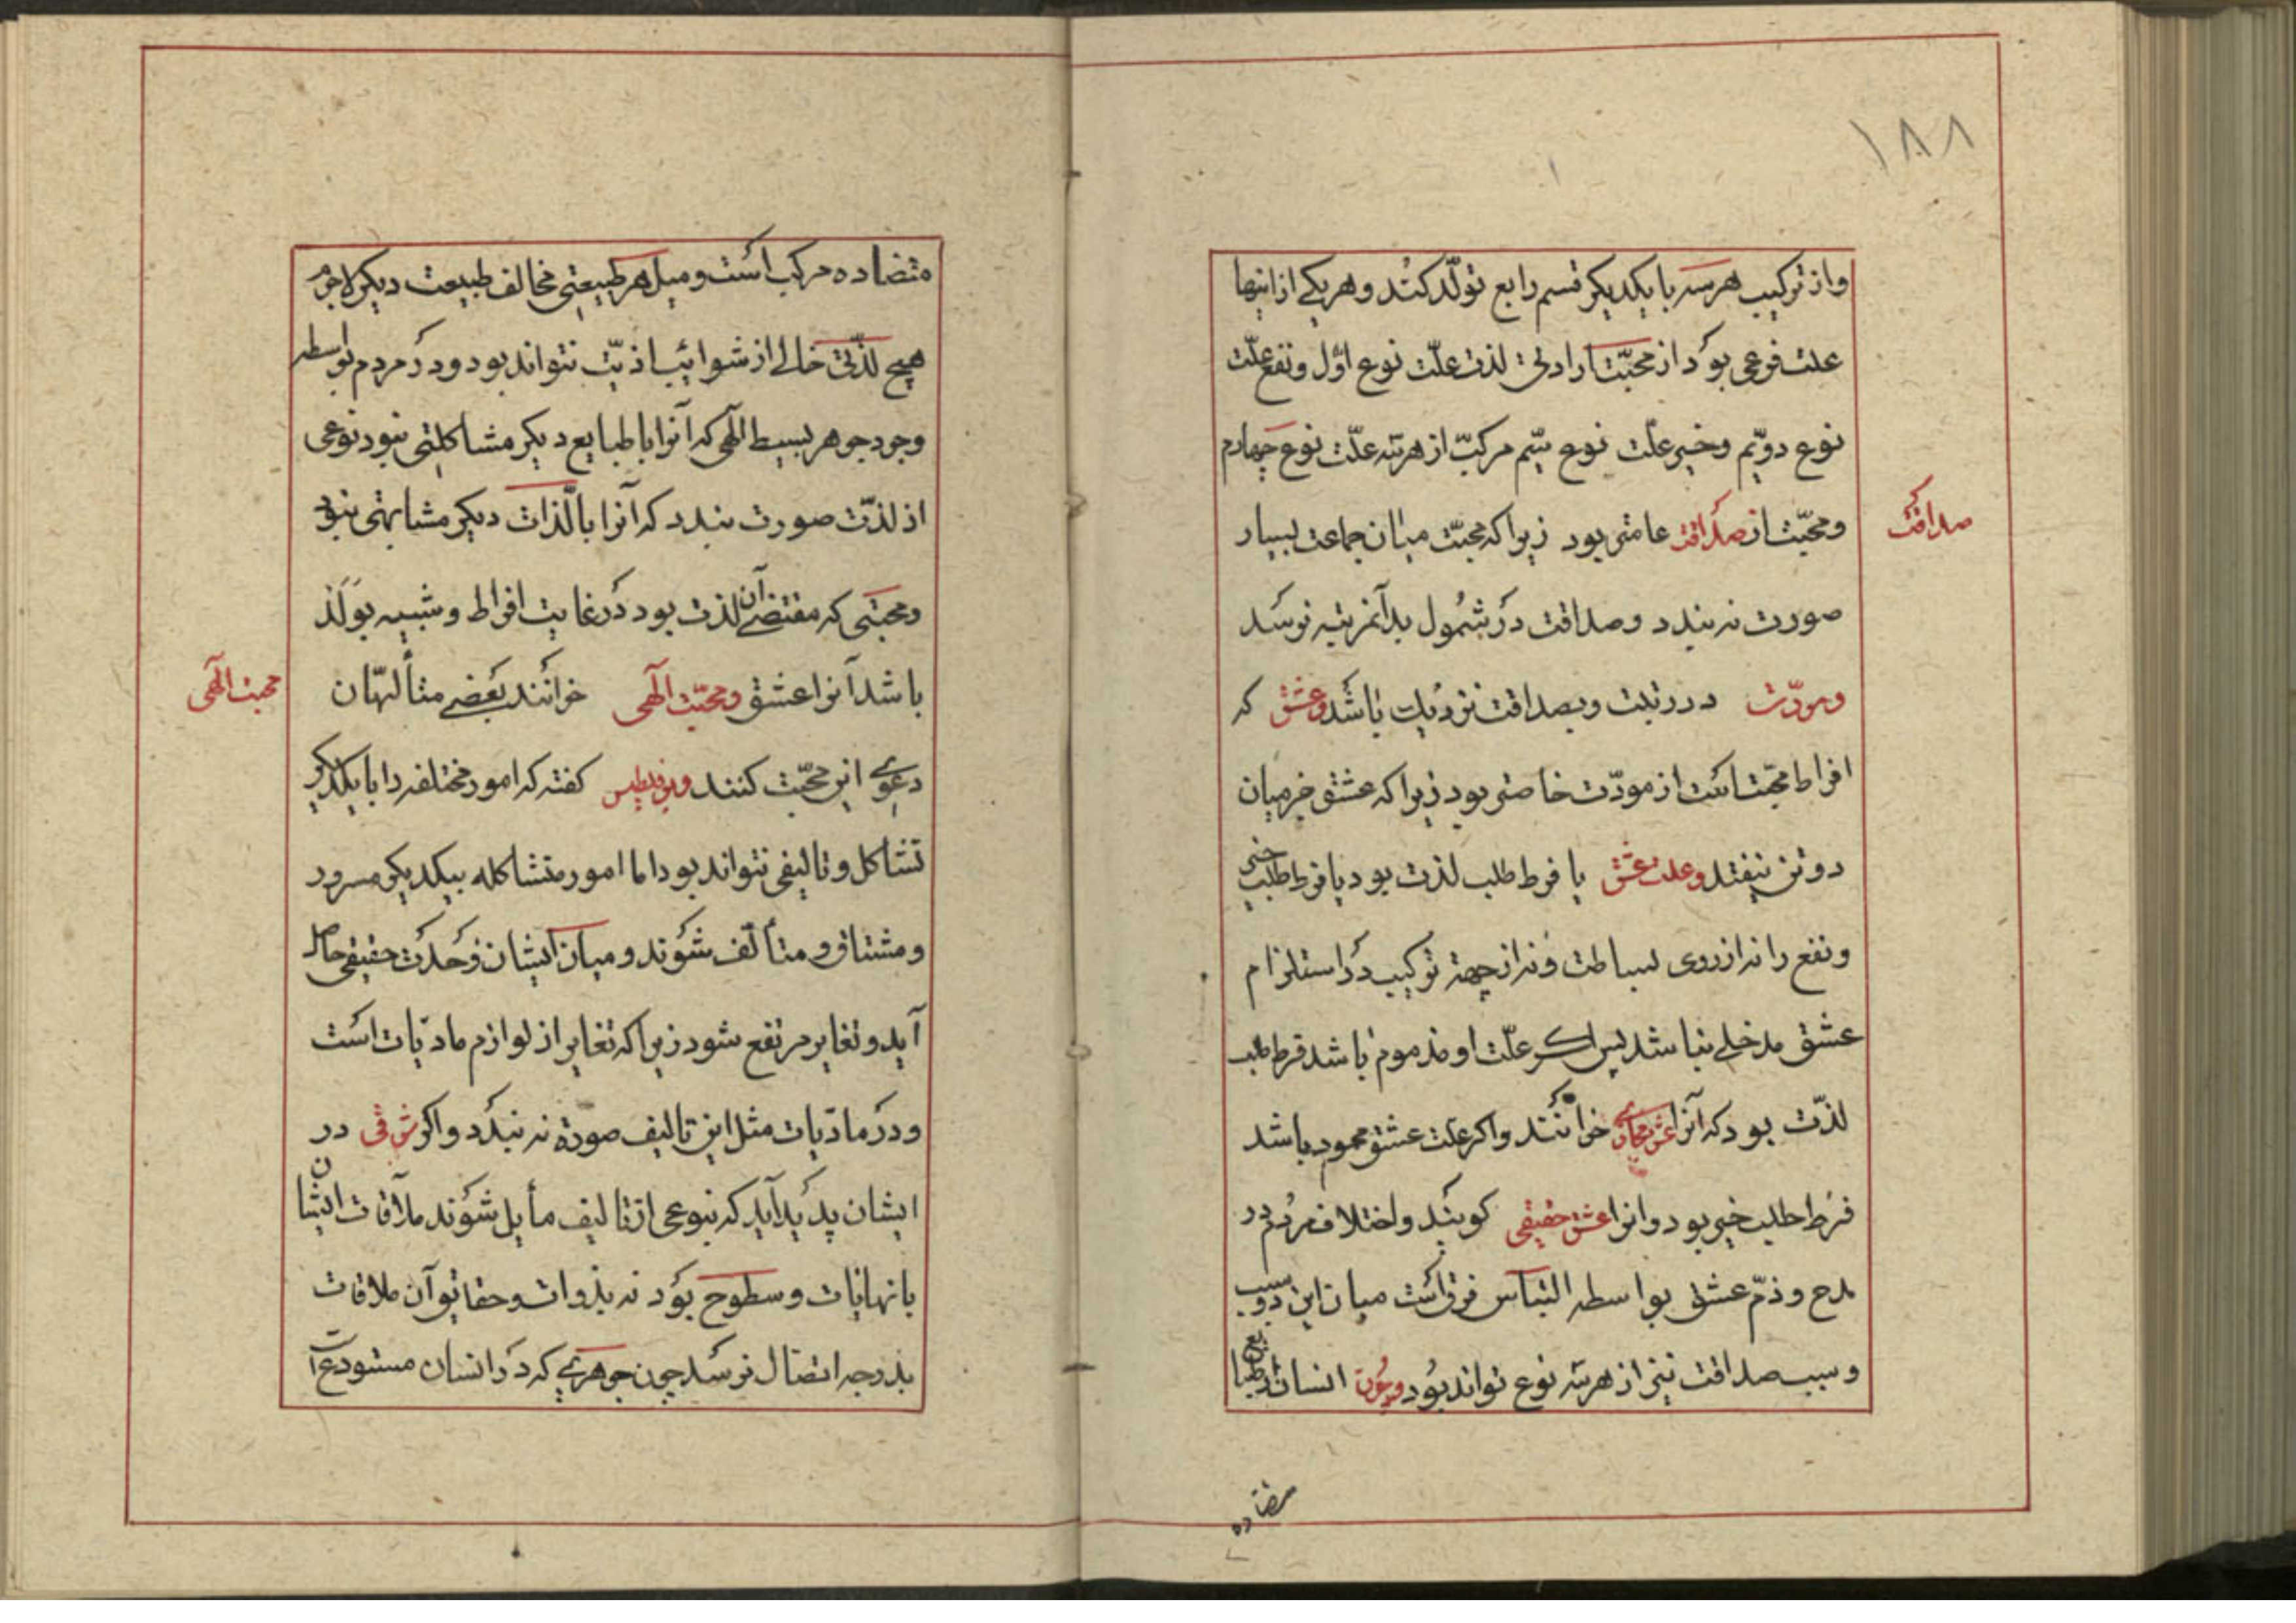 ۱۸۸
واز ترکیب هر سه با یکدیکر قسم رابع تولّد کند و هر یکی از اینها
علت نوعی بود از محبّت ارادی لذت علّت نوع اوّل و نفع علّت
نوع دویّم وخیر علّت نوع سیّم مرکبّ از هر سه علّت نوع چهارم
ومحبّت از صداقت عامتر بود زیرا که محبّت میان جماعت بسیار
صداقت
صورت نه بندد وصداقت در شمول بدآنمرتبه نرسد
ومودّت در رتبت وبصداقت نزدیک باشد وعشق که
افراط محبّت است از مودّت خاصتر بود زیرا که عشق جز میان
دو تن نیفتد وعلت عشق یا فرط طلب لذت بود یا فرط طلب خیر
ونفع را نه از روی بساطت ونه از جهة ترکیب در استلزام
عشق مدخلی نباشد پس اکر علّت او مذموم باشد فرط طلب
لذّت بود که آنرا عشق مجازی خوانند واکر علت عشق محمود باشد
فرط طلب خیر بود وانرا عشق حقیقی کویند واختلاف مردم در
مدح وذمّ عشق بواسطه التباس فرق است میان این دو سبب
وسبب صداقت نیز از هر سه نوع تواند بود وچون انسان از طبایع
متضاده
متضاده مرکب است ومیل هر طبیعتی مخالف طبیعت دیکر لاجرم
هیچ لذّتی خالی از شوائب اذیّت نتواند بود ودر مردم بواسطه
وجود جوهر بسیط الٓهی که آنرا با طبایع دیکر مشاکلتی نبود نوعی
از لذّت صورت بندد که آنرا با لّذات دیکر مشابهتی نبود
ومحبتی که مقتضی آن لذت بود در غایت افراط وشبیه بوله
باشد آنرا عشق ومحبّت الٓهی خوانند بعضی متألهّان
محبت الٓهی
دعوی این محبّت کنند کفته که امور مختلفه را با یکدیکر
تشاکل وتالیفی نتواند بود اما امور متشاکله بیکدیکر مسرور
ومشتاق ومتألّف شوند ومیان ایشان وحدت حقیقی حاصل
آید وتغایر مرتفع شود زیرا که تغایر از لوازم مادیّات است
ودر مادیّات مثل این تالیف صورة نه بندد واکر شوقی در
ایشان پدید آید که بنوعی از تالیف مأیل شوند ملاقات ایشان
با نهایات وسطوح بود نه بذوات وحقایق وآن ملاقات
بدرجه اتصال نرسد چون جوهری که در انسان مستودع است